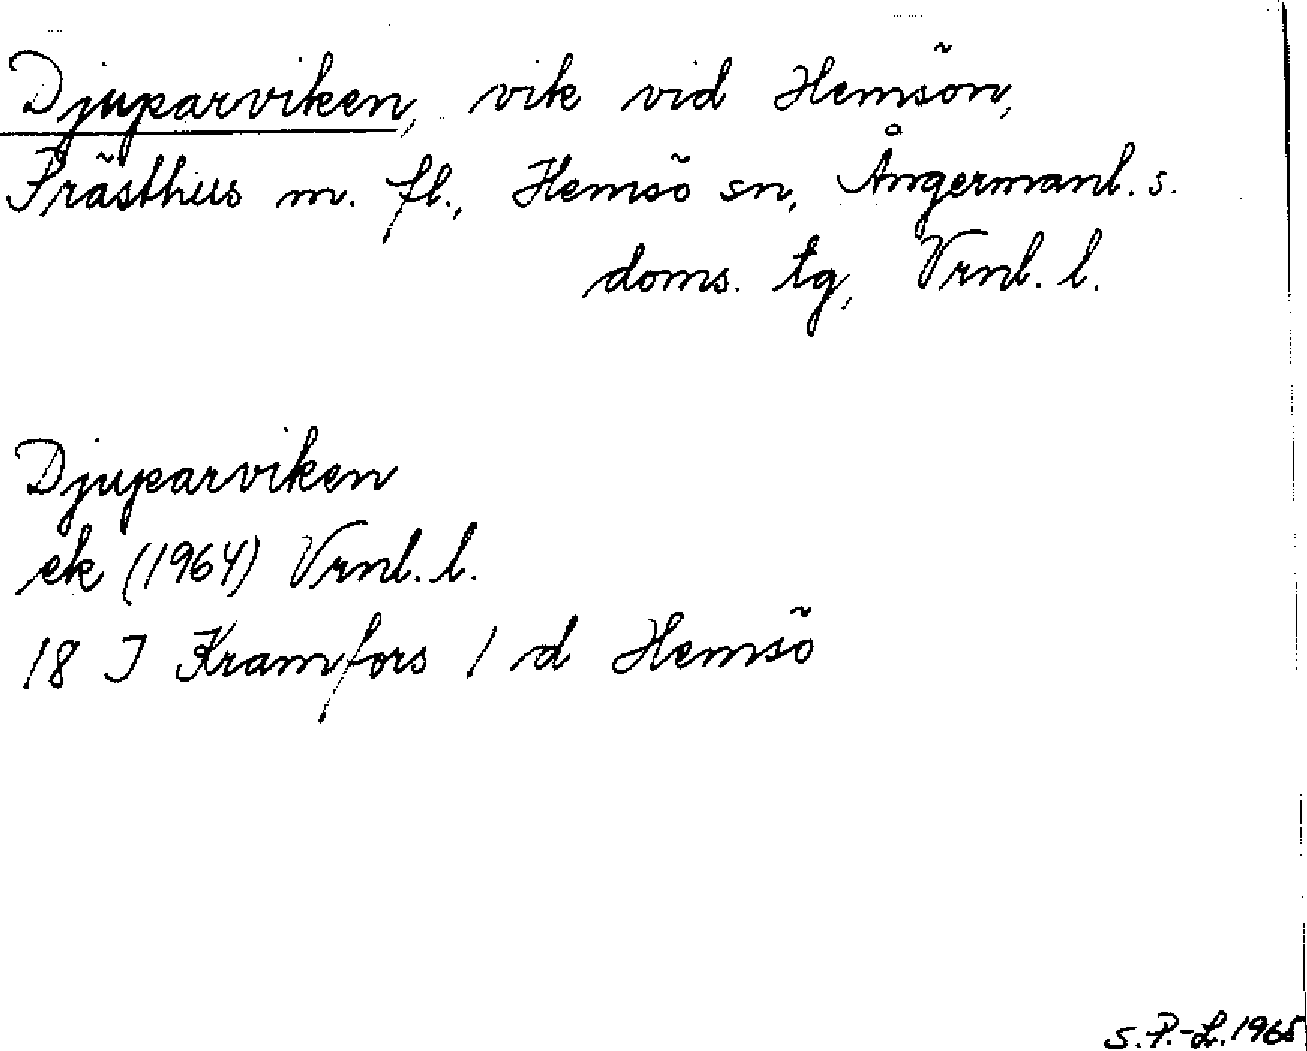 Djuparviken, vik vid Hemsön,
Prästhus m. fl., Hemsö sn, Ångermanl. s.
doms. tg, Vrnl. l.
Djuparviken
ek (1964) Vrnl. l.
18 I Kramfors 1 d Hemsö
S. P.-L. 1965